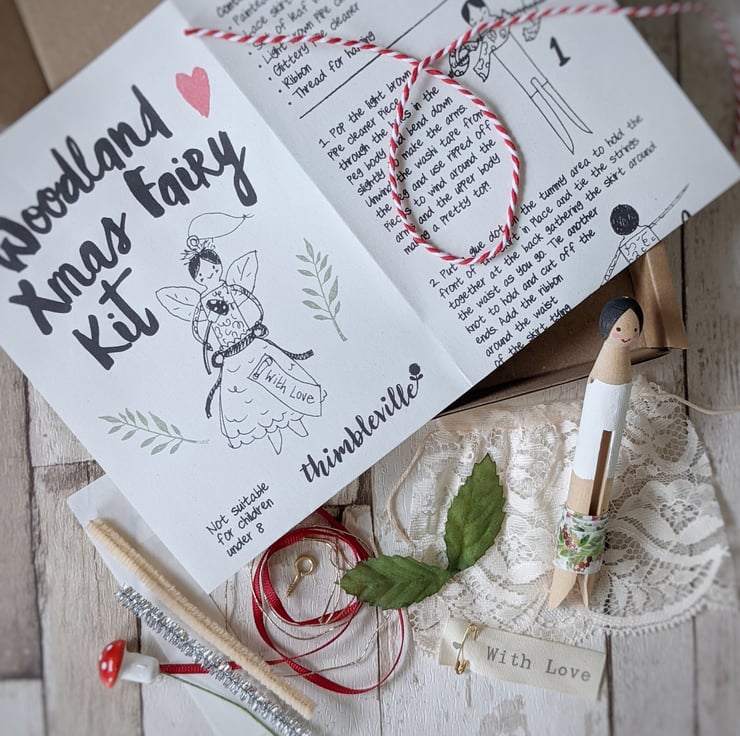 Woodland
Xmas Fairy
Kit
With Love
thimbleville
Not suitable
for children
under 8
• Lace skirt
• Set of leaf
• Light brown pipe cleaner
• Glittery pipe cleaner
• Ribbon
• Thread for hanging
1
1. Pop the light brown
pipe cleaner piece
through the in the
peg body and bend down
slightly to make the arms
Unwind the washi tape from
the and use ripped off
to wind around the
arms and the upper body
making a pretty top!
2. Put glue dot the tummy area to hold the
front of in place and tie the strings
together at the back gathering the skirt around
the waist as you go. Tie another
knot to hold and cut off the
ends. Add the ribbon
around the waist
of the skirt tying
With Love